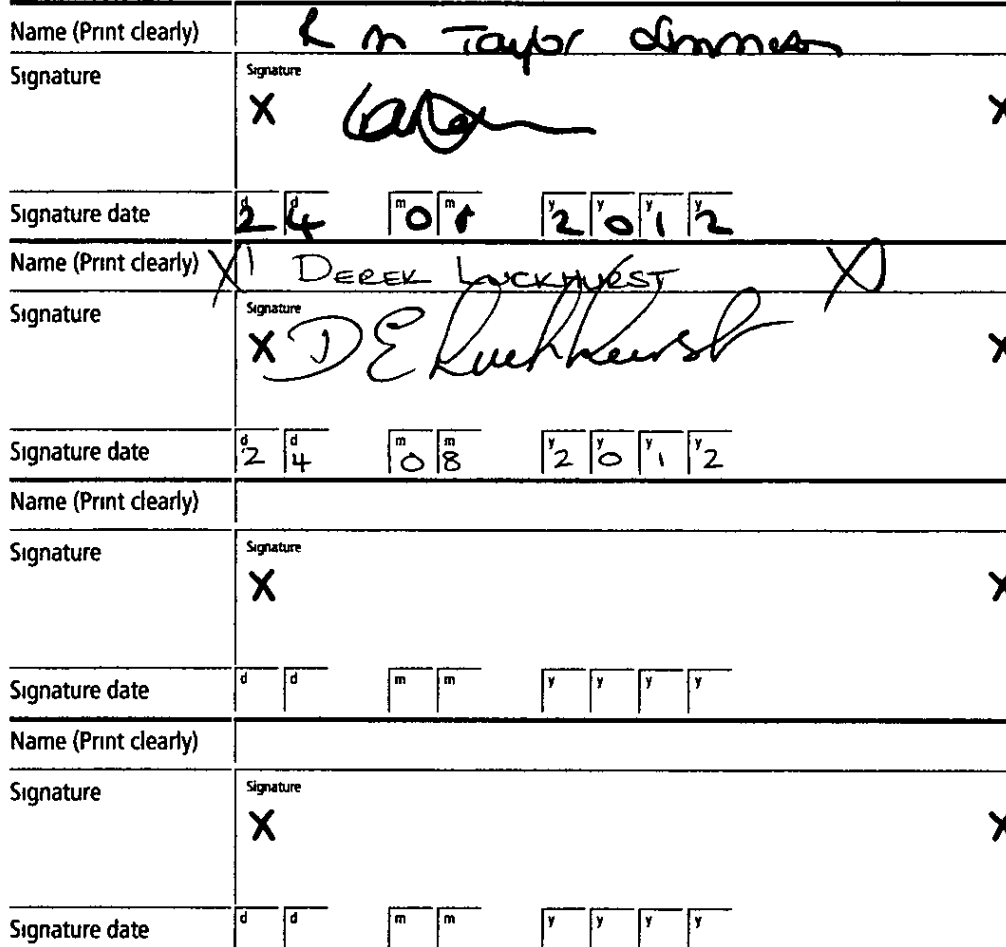 Name (Print clearly) R M Taylor
Signature Signature
X X
Signature date d2 d4 m0 m y2 y0 y1 y2
Name (Print clearly) X DEREK LUCKHURST X
Signature Signature
X D E Luckhurst X
Signature date d2 d4 m0 m8 y2 y0 y1 y2
Name (Print clearly)
Signature Signature
X X
Signature date d d m m y y y y
Name (Print clearly)
Signature Signature
X X
Signature date d d m m y y y y